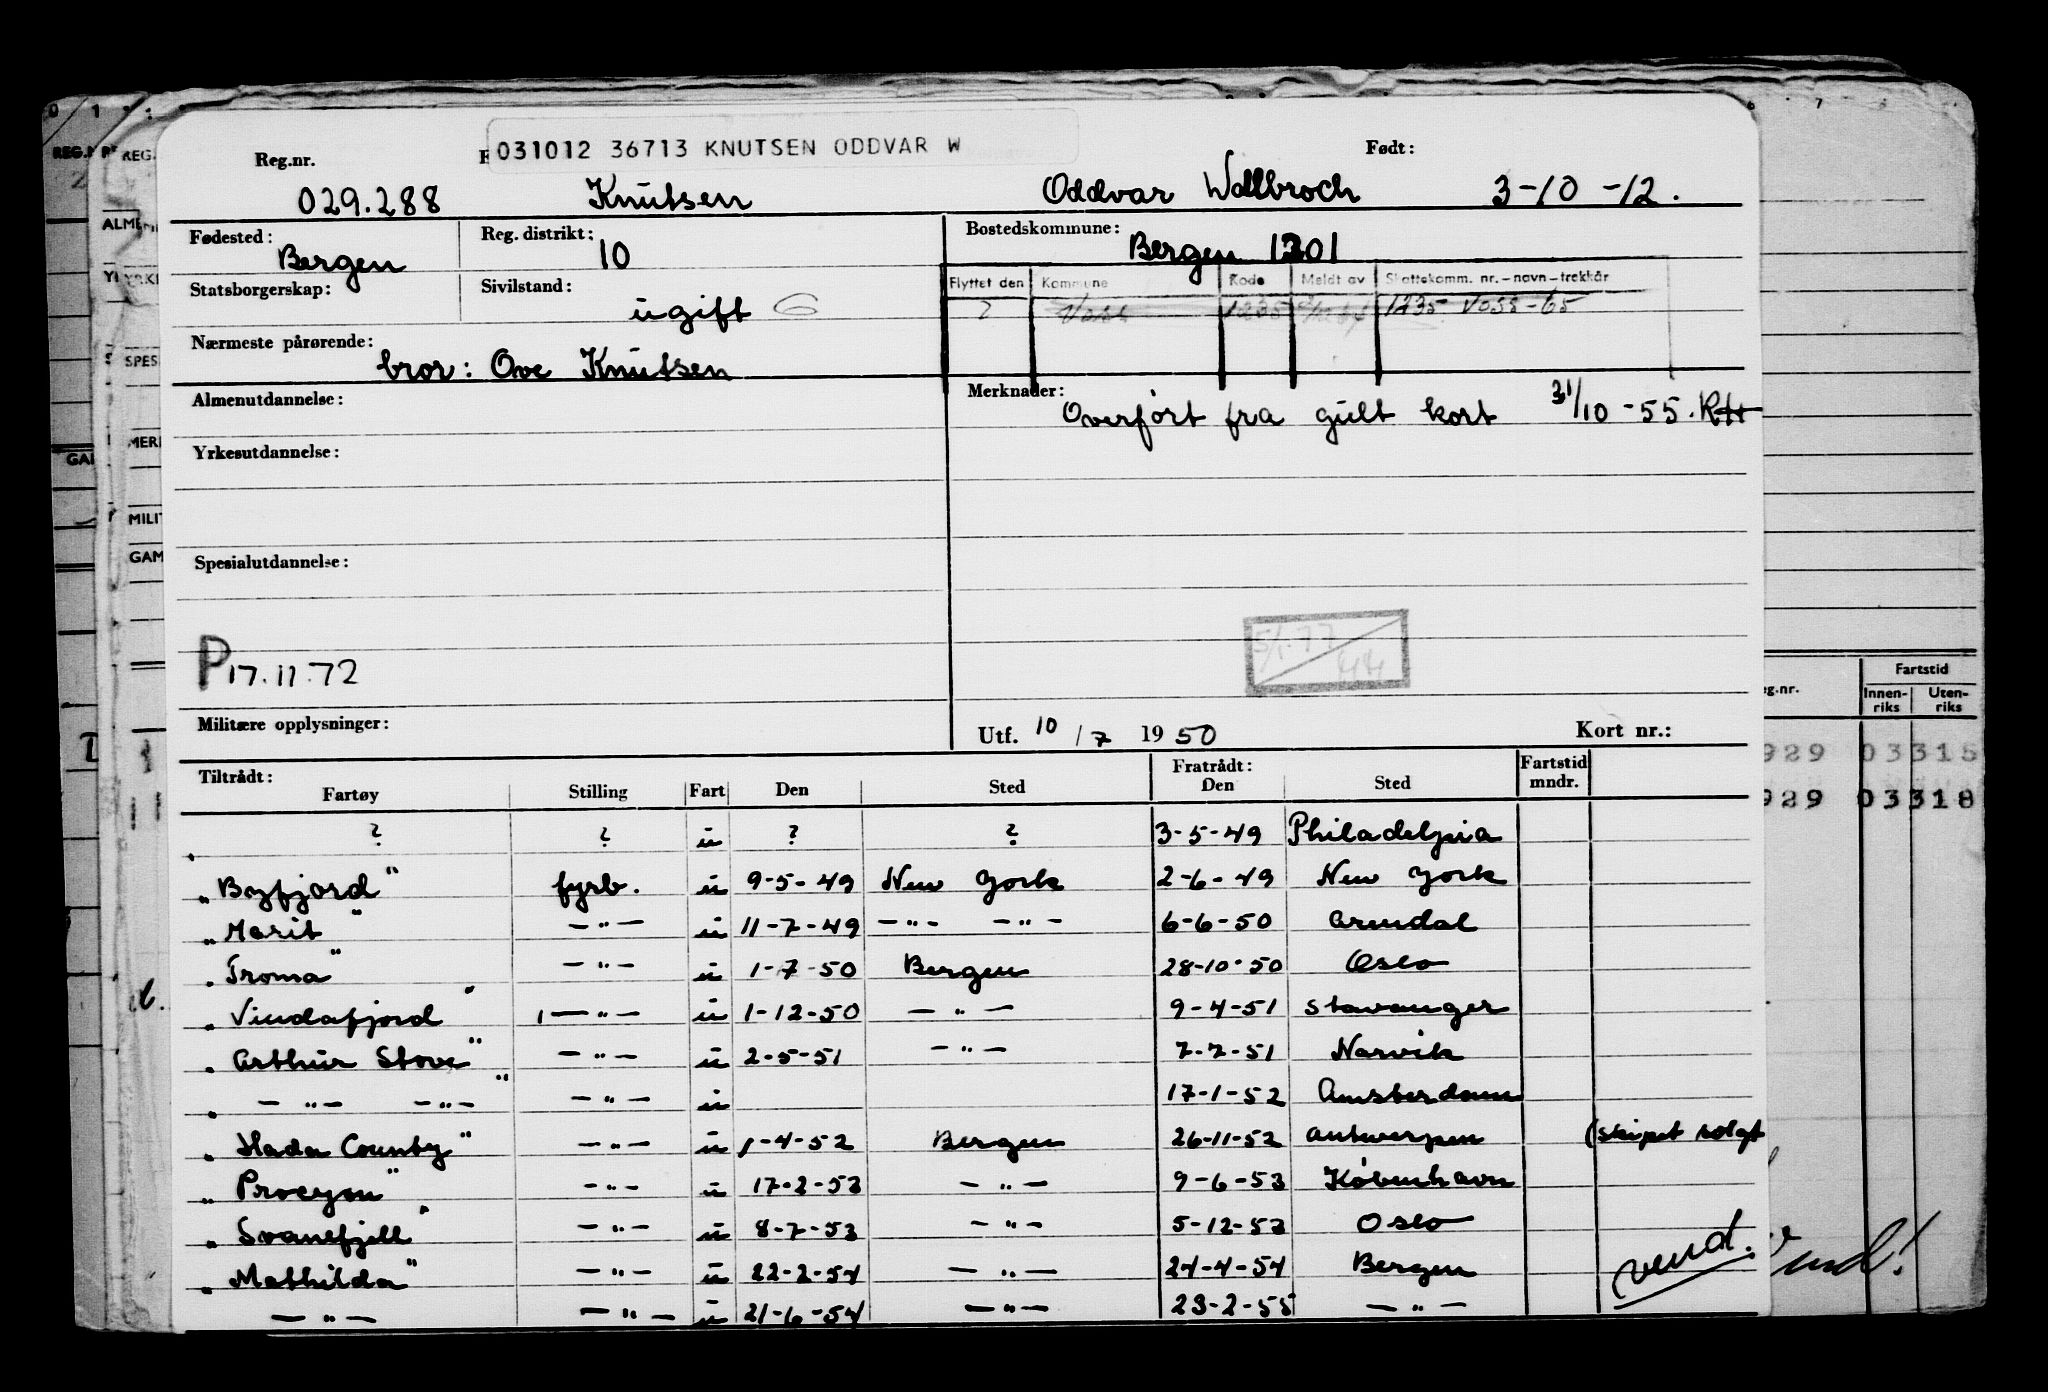 031012 36713 KNUTSEN ODDVAR W
Reg.nr. Født:
029.288 Knutsen Oddvar Wallbroch 3-10-12.
Fødested: Bergen Reg. distrikt: 10 Bostedskommune: Bergen 1301
Statsborgerskap: Sivilstand: ugift G
Flyttet den Kommune Kode Meldt av Skattekomm. nr.-navn-trekkår
? Voss 1235 1235 Voss-65
Nærmeste pårørende: bror: Ove Knutsen
Almenutdannelse:
Merknader: Overført fra gult kort 31/10-55.
Yrkesutdannelse:
Spesialutdannelse:
P 17.11.72
5/1-77 44
Militære opplysninger:
Utf. 10/7 1950 Kort nr.:
Tiltrådt: Fratrådt: Fartstid
Fartøy Stilling Fart Den Sted Den Sted mndr.
? ? u ? ? 3-5-49 Philadelpia
"Byfjord" fyrb. u 9-5-49 New York 2-6-49 New York
"Marit" -"- u 11-7-49 -"- -"- 6-6-50 Arendal
"Troma" -"- u 1-7-50 Bergen 28-10-50 Oslo
"Vindafjord" -"- u 1-12-50 -"- 9-4-51 Stavanger
"Arthur Stove" -"- u 2-5-51 -"- 7-7-51 Narvik
"-"- -"-" -"- u 17-1-52 Amsterdam
"Hada County" -"- u 1-4-52 Bergen 26-11-52 Antwerpen (skipet solgt
"Procyon" -"- u 17-2-53 -"- 9-6-53 København
"Svanefjell" -"- u 8-7-53 -"- 5-12-53 Oslo
"Mathilda" -"- u 22-2-54 -"- 24-4-54 Bergen
-"- -"- u 21-6-54 -"- 23-2-55 -"-
vend.
REG.
ALME
SPES
MERK
MILIT
GAM
Fartstid
Innen-riks Uten-riks
929 03318
929 03318